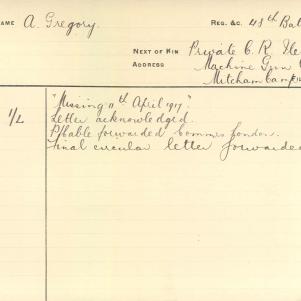 NAME A. Gregory.
REG. &C. 48th Bat
NEXT OF KIN Private C. R.
ADDRESS Machine Gun
Mitcham Camp
1/L "Missing 11th April 1917".
Letter acknowledged.
forwarded Commrs London.
Final circular letter forwarded